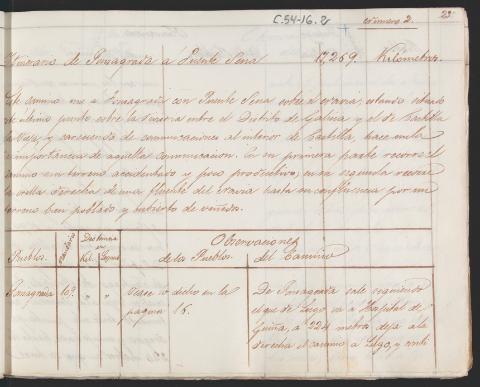 C.54-16.2
número 2.
23
Itinerario de Fonsagrada á Puente Sena 17,269. Kilometros.
Este camino une á Fonsagrada con Puente Sena sobre el Navia; estando situado
este ultimo punto sobre la divisoria entre el Distrito de Galicia y el de Castilla
la Vieja, y careciendo de comunicaciones al interior de Castilla, hace nula
la importancia de aquella comunicacion. En su primera parte recorre el
camino un terreno accidentado y poco productivo; en su segunda recorre
la orilla derecha de una fluente del Navia hasta su confluencia por un
terreno bien poblado y cubierto de viñedos.
Observaciones
Pueblos. Vecindario Distancia en Kil. Leguas de los Pueblos. del Camino
Fonsagrada 109. " " Vease lo dicho en la De Fonsagrada sale siguiendo
pagina 16. el que de Lugo, va á Hospital de
Guiña, á 224 metros deja á la
derecha el camino a Lugo, y conti